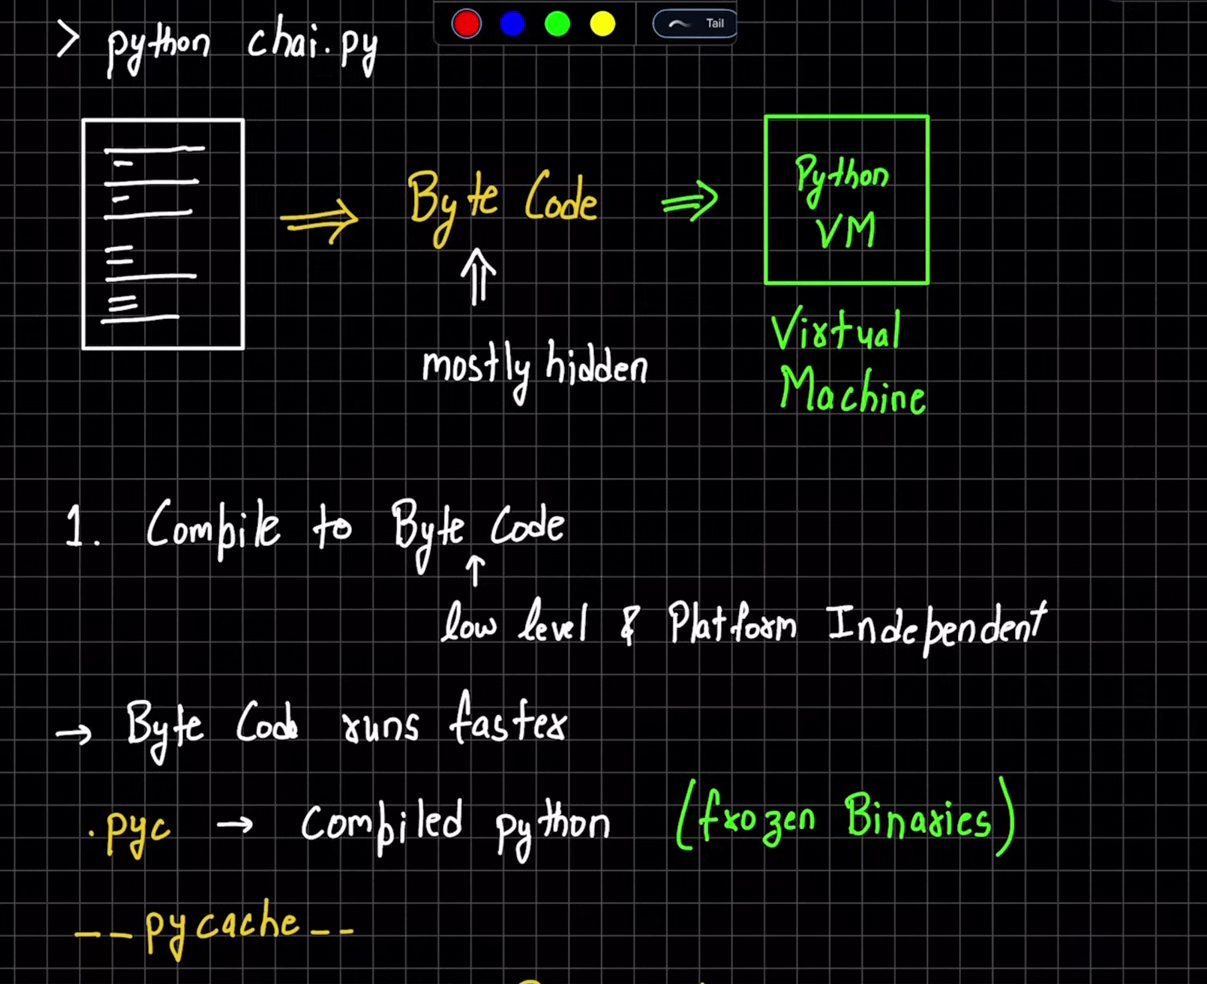 > python chai.py
Tail
Byte Code
Python
VM
mostly hidden
Virtual
Machine
1. Compile to Byte Code
low level & Platform Independent
→ Byte Code runs faster
.pyc → Compiled python (frozen Binaries)
__pycache__